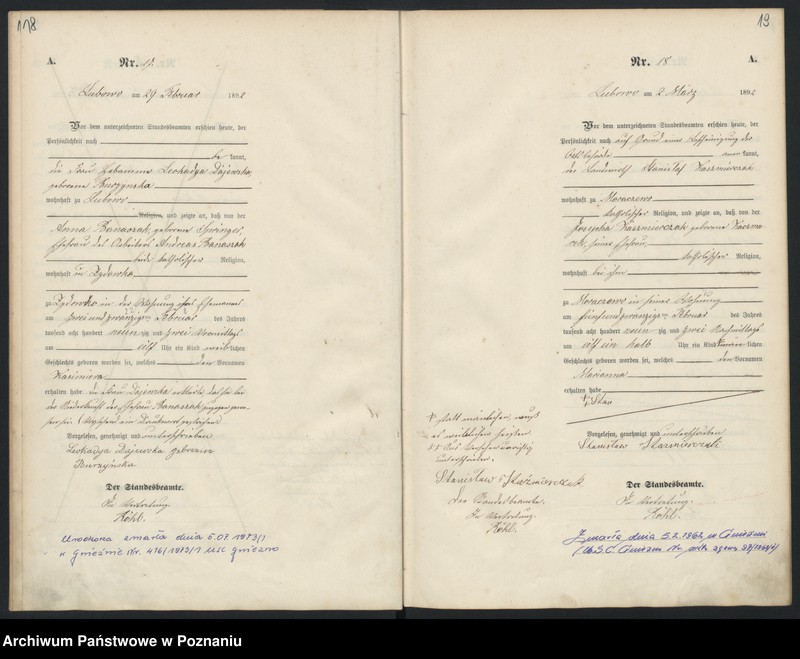 118
A.
Nr. 17.
Lubowo am 29 Februar 1892
Vor dem unterzeichneten Standesbeamten erschien heute, der
Persönlichkeit nach
be kannt,
die Frau Hebamme Leokadya Dajewska,
geborene Burzynska
wohnhaft zu Lubowo
Religion, und zeigte an, daß von der
Anna Banaszak, geborene Springer,
Ehefrau des Arbeiters Andreas Banaszak
beide katholischer Religion,
wohnhaft in Zydowko
zu Zydowko in der Wohnung ihres Ehemannes
am zwei und zwanzigsten Februar des Jahres
tausend acht hundert neun zig und zwei Vormittags
um elf Uhr ein Kind weiblichen
Geschlechts geboren worden sei, welches den Vornamen
Kazimiera
erhalten habe. die Frau Dajewska erklärte, daß sie bei
der Niederkunft der Ehefrau Banaszak zugegen gewe-
sen sei.
Vorgelesen, genehmigt und unterschrieben
Leokadya Dajewska geborene
Burzyńska
Der Standesbeamte.
In Vertretung.
Röhl.
zmarła dnia 5.07.1973
w Gnieźnie Nr. 416/1973/1 USC Gniezno
19
Nr. 18
A.
Lubowo am 2 März 1892
Vor dem unterzeichneten Standesbeamten erschien heute, der
Persönlichkeit nach auf Grund einer Bescheinigung der
Ortsbehörde kannt,
der Landwirth Stanislaus Kazmierczak
wohnhaft zu Moraczewo
katholischer Religion, und zeigte an, daß von der
Josepha Kazmierczak geborene
seiner Ehefrau
katholischer Religion,
wohnhaft bei ihm
zu Moraczewo in seiner Wohnung
am fünf und zwanzigsten Februar des Jahres
tausend acht hundert neun zig und zwei Nachmittags
um elf ein halb Uhr ein Kind
Geschlechts geboren worden sei, welches den Vornamen
Marianna
erhalten habe
Vorgelesen, genehmigt und unterschrieben
Stanisław Kazmierczak
Der Standesbeamte.
In Vertretung.
Röhl.
statt männlichen, muß
es weiblichen heißen
Stanisław Kaźmierczak
Der Standesbeamte.
In Vertretung.
Röhl.
Zmarła dnia 5.2.1962 w Gnieźnie
Archiwum Państwowe w Poznaniu